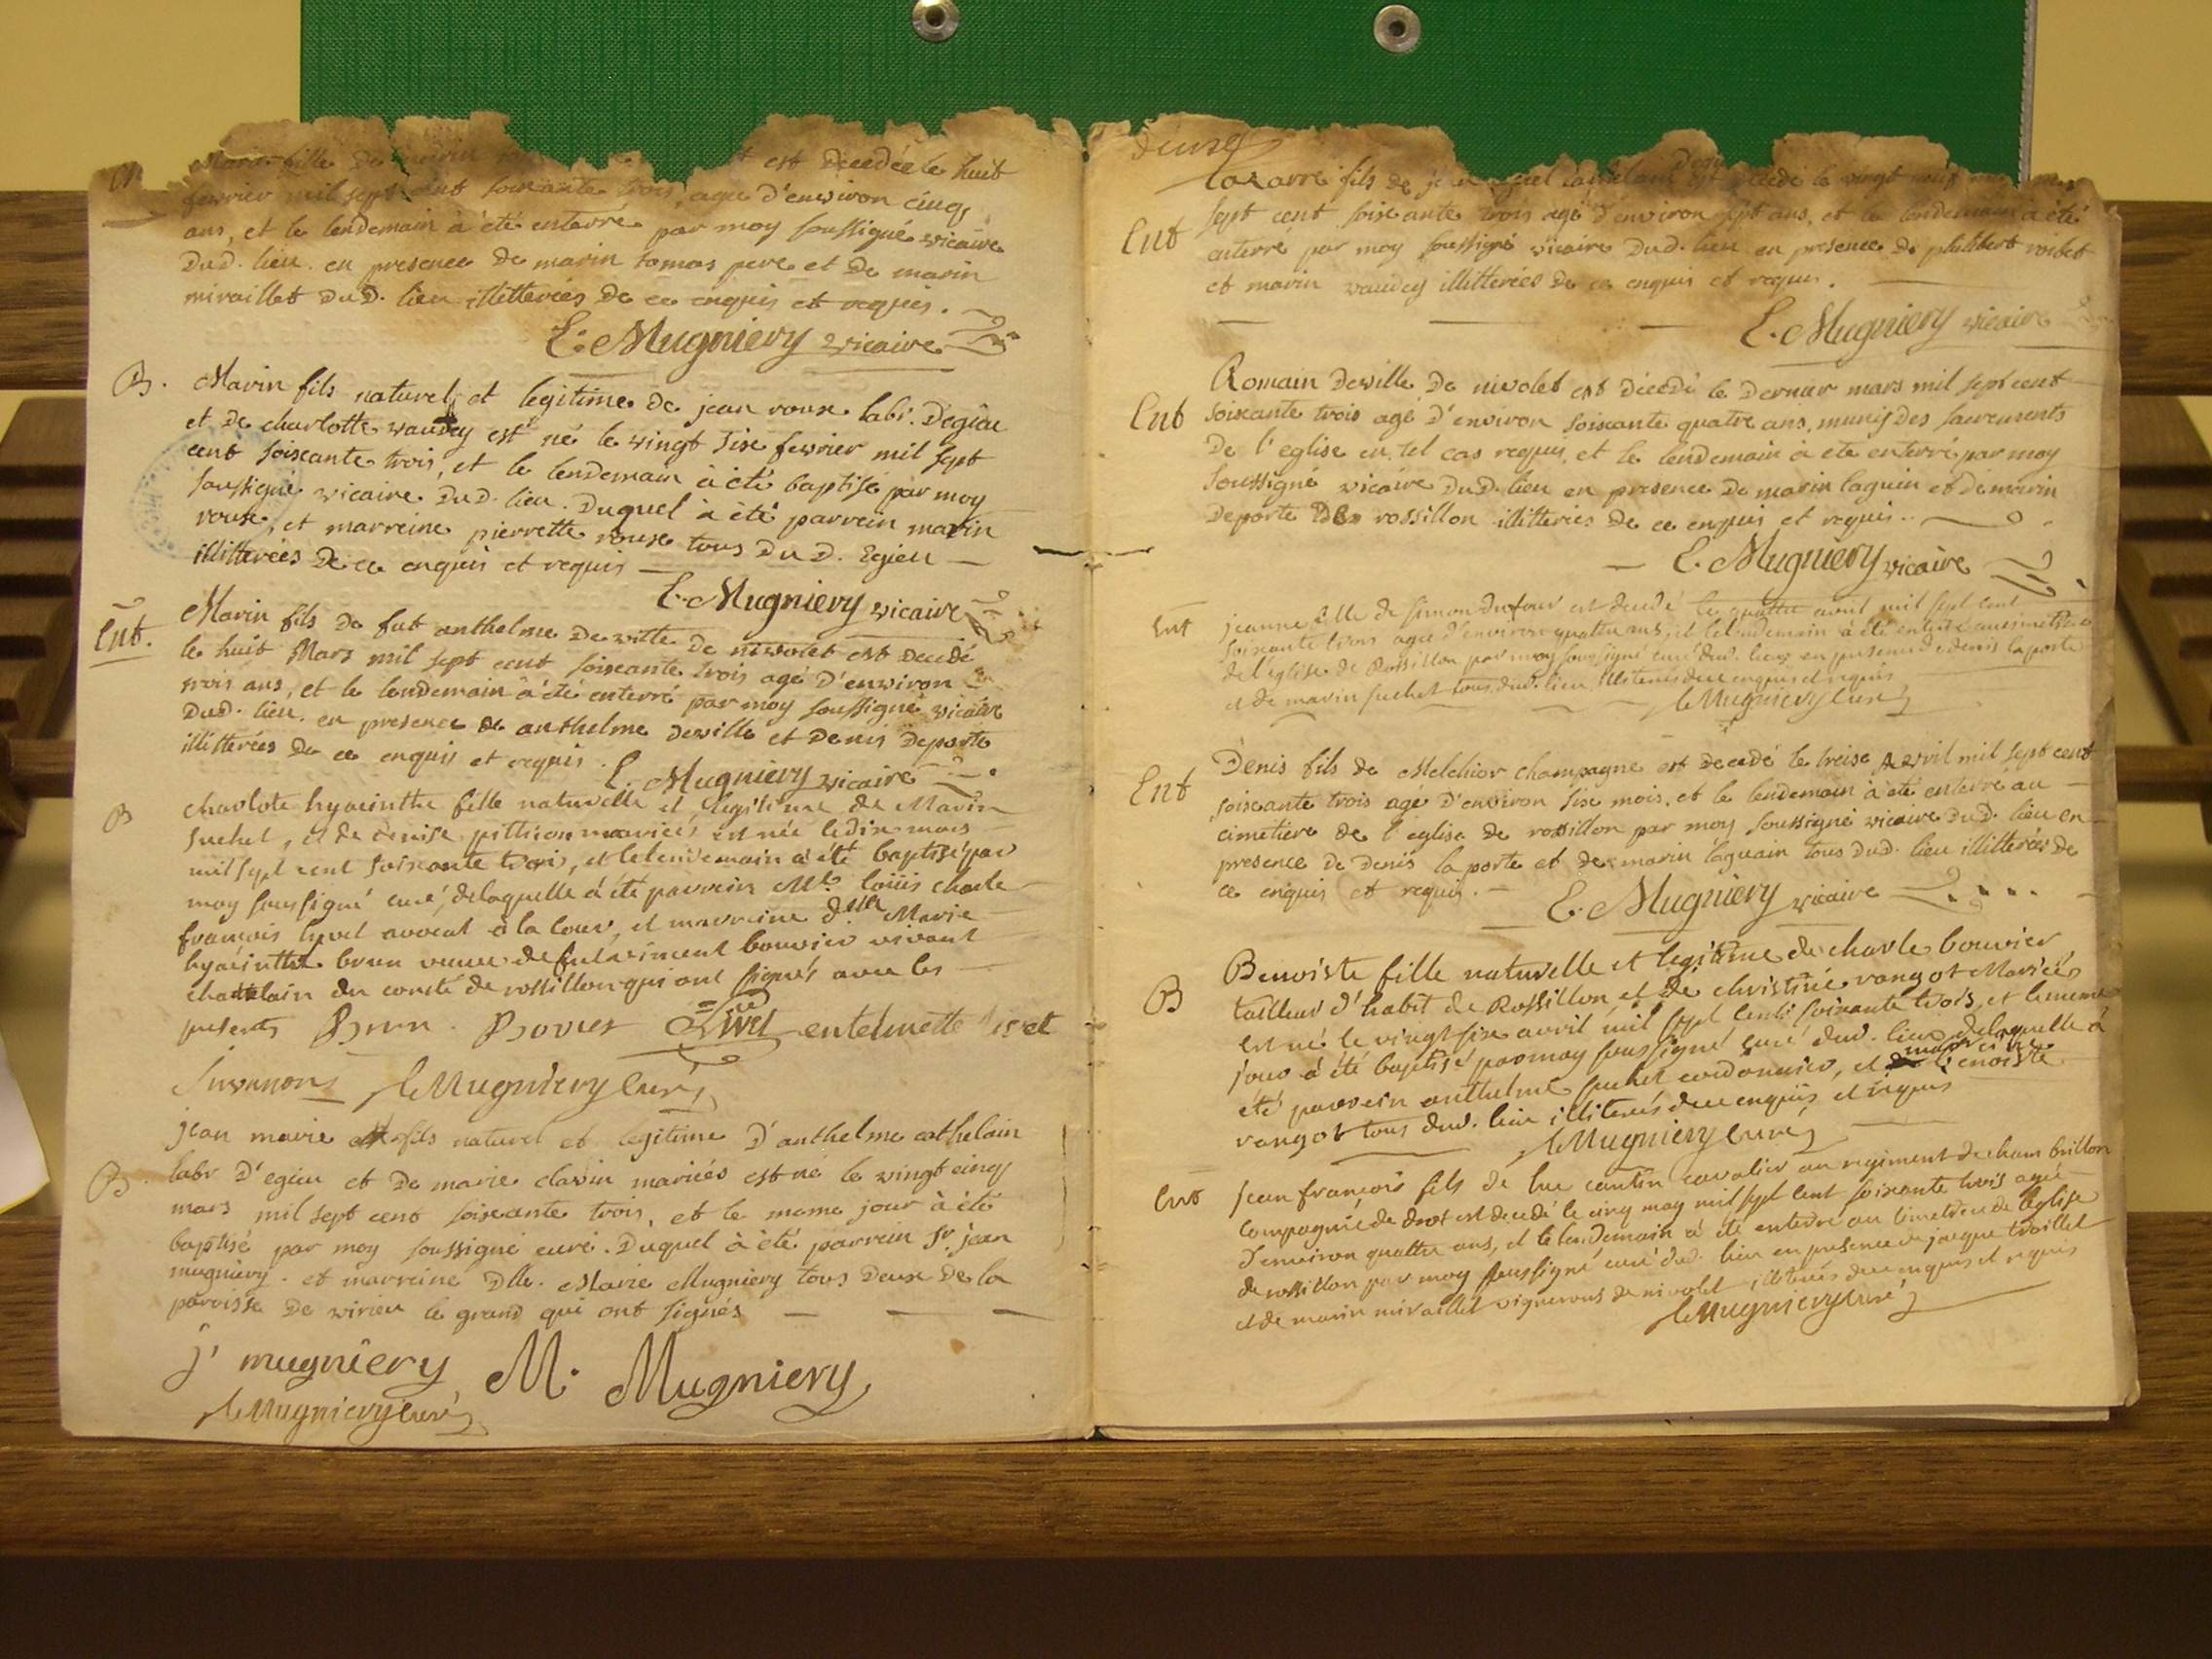 Marie fille de marin est decedée le huit
fevrier mil sept cent soixante trois, agee d'environ cinq
ans, et le lendemain à été enterré par moy soussigné vicaire
dud. lieu. en presence de marin tomas pere et de marin
miraillet dud. lieu illitterées de ce enquis et requis.
E. Mugniery vicaire
B. Marin fils naturel et legitime de jean roux labr. d'egieu
et de charlotte vaudey est né le vingt sixe fevrier mil sept
cent soixcante trois, et le lendemain à été baptisé par moy
soussigné vicaire dud. lieu. Duquel à été parrein marin
roux, et marreine pierrette roux tous du d. Egieu
illitterées de ce enquis et requis
E. Mugniery vicaire
Ent. Marin fils de fut anthelme deville de nivolet est decedé
le huit Mars mil sept cent soixcante trois agé d'environ
trois ans, et le lendemain à été enterré par moy soussigné vicaire
dud. lieu. en presence de anthelme deville et denis deporte
illitterées de ce enquis et requis.
E. Mugniery vicaire
B charlote hyacinthe fille naturelle et legitime de Marin
suchet, et de denise pithion mariés, est née le dix mars
mil sept cent soixcante trois, et le lendemain à été baptisé par
moy soussigné curé, de laquelle à été parrein Mr. loüis charle
francois livet avocat à la cour, et marreine dlle Marie
hyacinthe brun veuve de fut bouvier vivant
chattelain du comté de rossillon qui ont signés avec les
presents Brun. Bovier Livet entelmette livet
E Mugniery curé
B. jean marie fils naturel et legitime d'anthelme cathelain
labr d'egieu et de marie clavin mariés est né le vingt cinq
mars mil sept cent soixante trois, et le meme jour à été
baptisé par moy soussigné curé. Duquel à été parrein sr. jean
mugniery. et marreine dlle. Marie Mugniery tous deux de la
paroisse de virieu le grand qui ont signés
j. mugniery M. Mugniery
E Mugniery curé
deuse
Lazarre fils de est decedé le vingt
sept cent soixcante trois agé d'environ sept ans, et le lendemain à été
Ent enterré par moy soussigné vicaire dud. lieu en presence de philibert
et marin vaudey illitterées de ce enquis et requis.
E. Mugniery vicaire
Romain deville de nivolet est décedé le dernier mars mil sept cent
Ent soixcante trois agé d'environ soixcante quatre ans, munis des sacrements
de l'eglise en tel cas requis, et le lendemain à été enterré par moy
soussigné vicaire dud. lieu en presence de marin laguin et de marin
deporte de rossillon illitterées de ce enquis et requis.
E. Mugniery vicaire
Ent jeanne fille de simon dufour est decedé le quattre avril mil sept cent
soixante trois agée d'environ quattre ans, et le lendemain à été enterré au cimettiere
de l'eglise de Rossillon par moy soussigné curé dud. lieu en presence de denis laporte
et de marin suchet tous dud. lieu illiterés de ce enquis et requis
E Mugniery curé
Denis fils de Melchior champagne est decedé le treise Avril mil sept cent
Ent soixcante trois agé d'environ sixe mois, et le lendemain à été enterré au
cimetière de l'église de rossillon par moy soussigné vicaire dud. lieu en
presence de denis la porte et de marin laguain tous dud. lieu illitterés de
ce enquis et requis.
E. Mugniery vicaire
Benoiste fille naturelle et legitime de charle bouvier
B tailleur d'habit de Rossillon et de christine rangot Mariés
est né le vingt sixe avril mil sept cent soixante trois, et le meme
jour à été baptisé par moy soussigné curé dud. lieu, de laquelle à
été parrein anthelme suchet cordonnier, et marreine benoiste
rangot tous dud. lieu illiterés de ce enquis et requis
E Mugniery curé
Ent jean francois fils de luc cantin cavalier au regiment de cham brillon
compagnie de drot est decedé le cinq may mil sept cent soixante trois agé
d'environ quattre ans, et le lendemain à été enterré au cimettiere de l'eglise
de rossillon par moy soussigné curé dud. lieu en presence de jacque troillet
et de marin miraillet vignerons de nivolet, illiterés de ce enquis et requis
E Mugniery curé